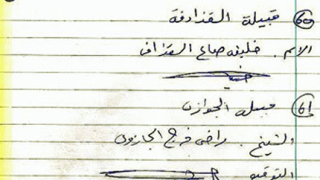 ٦٠ قبيلة القذاذفة
الاسم . خليفه صالح القذافي
٦١ قبيلة الجوازي
الشيخ . راضي فرج الجازوي
التوقيع